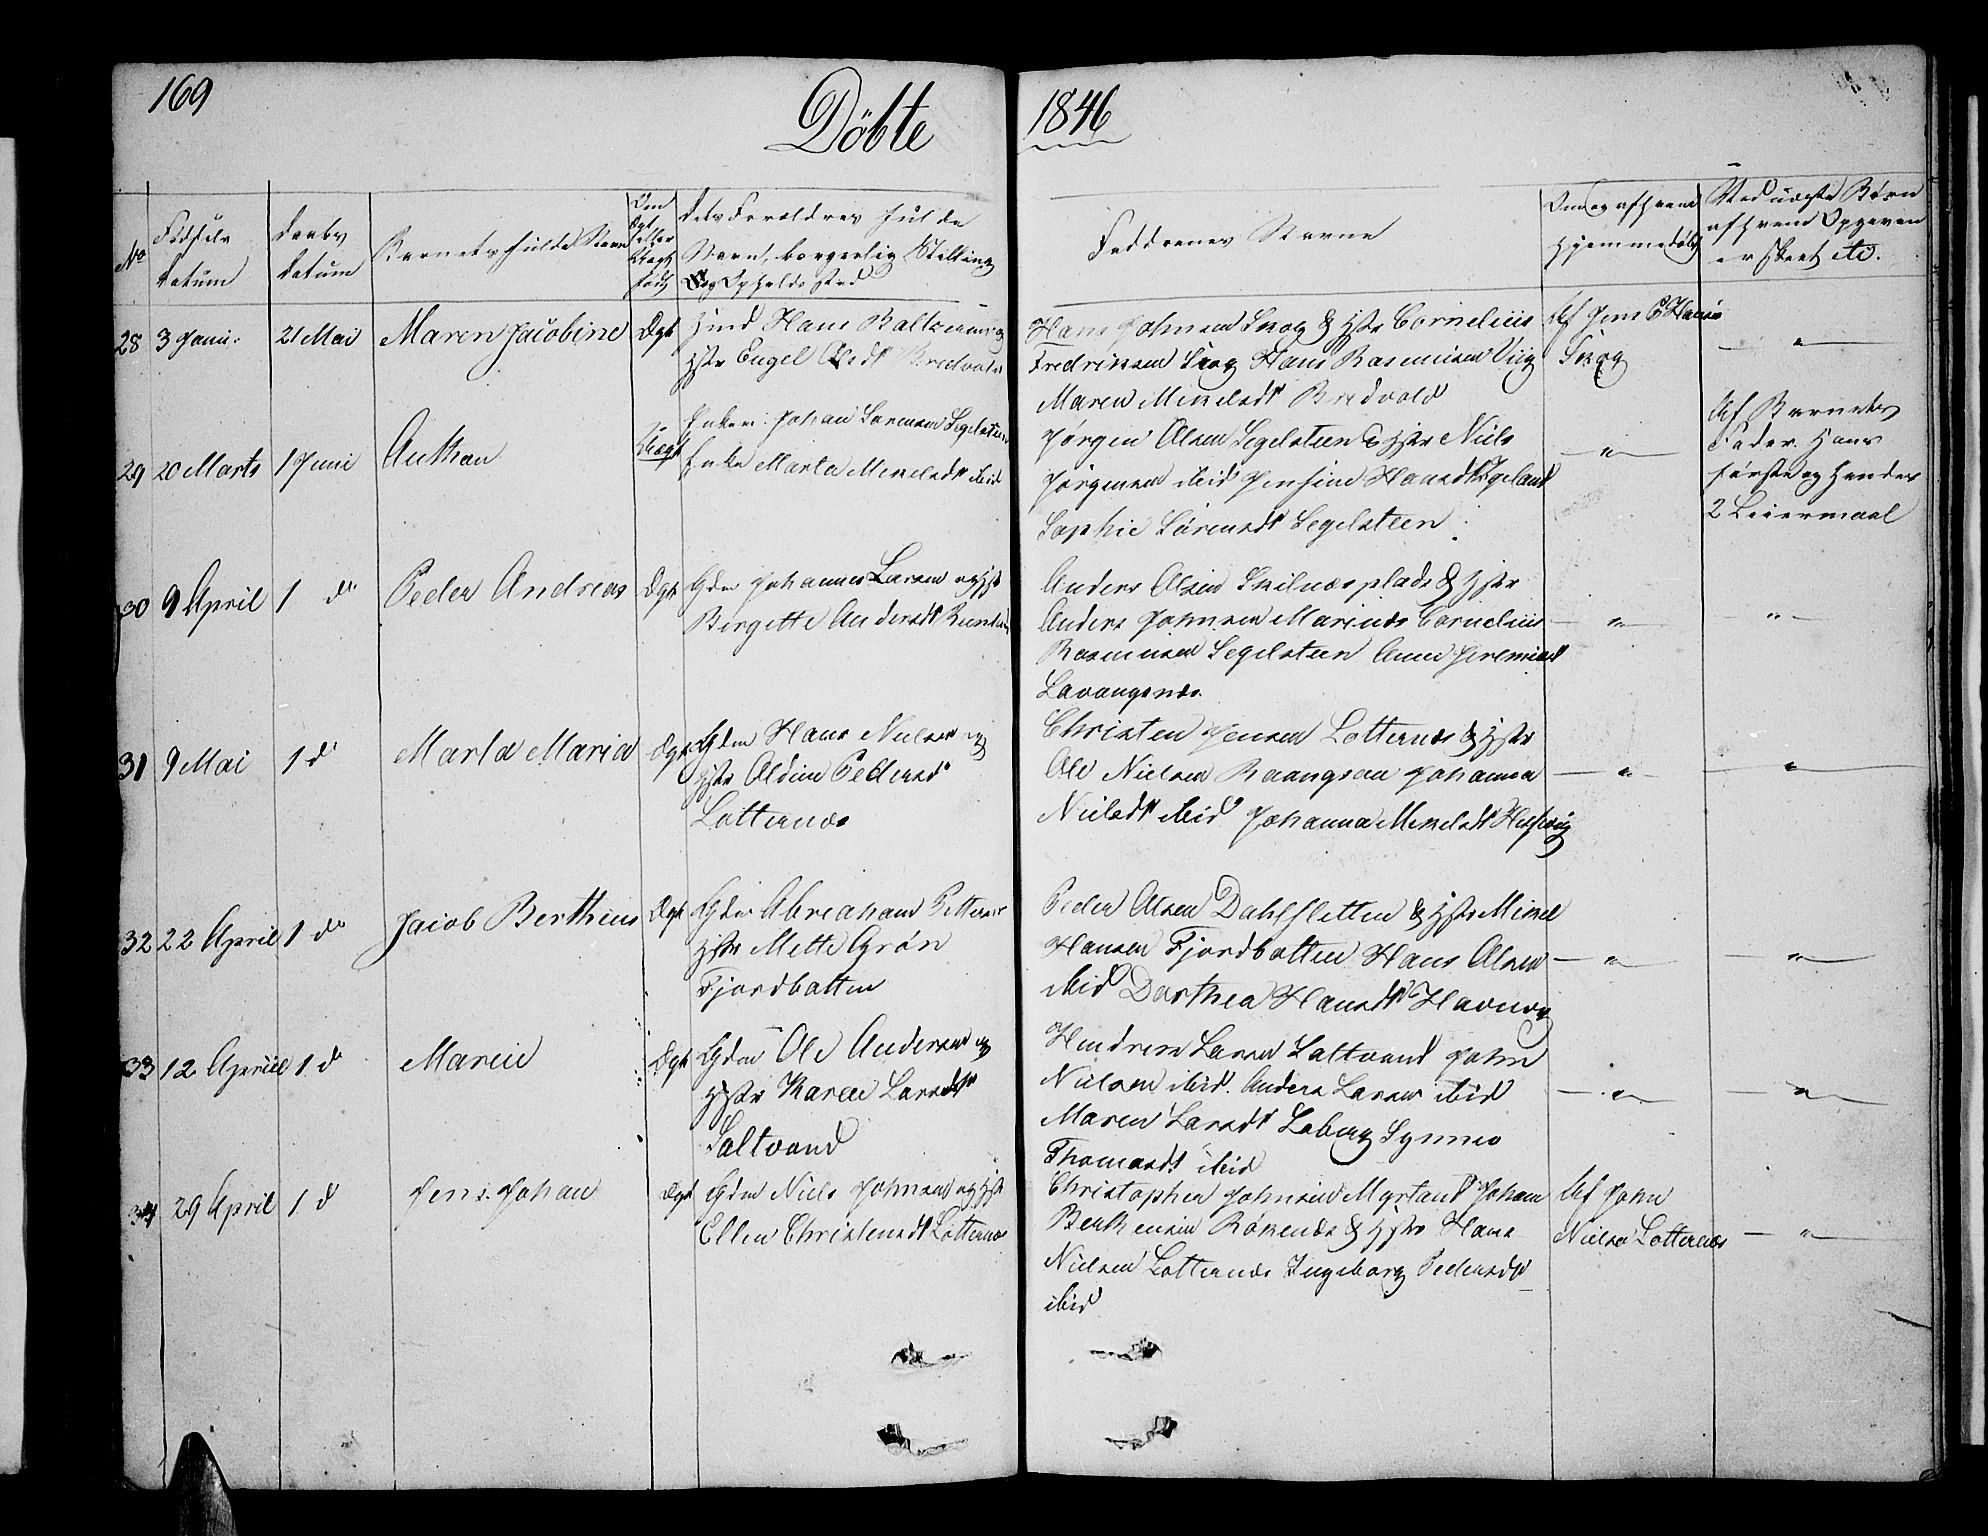 169
Döbte
1846
No
Födsels
datum
Daabs
datum
Barnets fulde Navn
Om
Ægt
eller
Uægt
født
dets Foreldres fulde
Navn, borgerlig Stilling
og Opholds sted
Faddrenes Navne
Om og af hvem
hjemmedøbt
Ved uægte Børn
af hvem Opgaven
er skeet etc.
28 3 Janu. 21 Mai Maren Jacobine Ægt
Hans Baltzersen og
Hstr Engel Bredvold
Hans Johnsen Skog & Hstr Cornelius
Fredriksen Skog Hans Rasmusen Viig
Maren Mikelsdt Bredvold
Af Jens
Skog
"
29 20 Marts 1 Juni Anthon Uægt
Enkem. Johan Larensen Segelsteen
Enke Marta Mikelsdt ibid
Jørgen Olsen Segelsteen & Hstr Niels
Jørgensen ibid Jensine Hansdt Igeland
Sophie Sørensdt Segelsteen
"
Af Barnets
Fader. Hans
første og hendes
2 Leiermaal
30 9 April 1 do Peder Andreas Ægt
Gdm Johannes Larsen og Hst
Birgette Andersdt
Anders Olsen Skilnæsplads & Hstr
Anders Johnsen Marinæs Cornelius
Rasmusen Segelsteen Anne Jeremiasd
Lavangsnæs.
"
"
31 9 Mai 1 d Marta Maria Ægt
Gdm Hans Nielsen og
Hstr Aldine Pedersd
Lotternæs
Christen Jensen Lotternæs & Hstr
Ole Nielsen Raangsan Johanna
Nielsdt ibid Johanna Mikelsdt
"
"
32 22 April 1 do Jacob Bertheus Ægt
Gdm Abraham Petters
Hstr Mette Grøn
Fjordbotten
Peder Olsen Dahlsletten & Hstr Mikel
Hansen Fjordbotten Hans Olsen
ibid Dorthea Hansdt Havnvig
"
"
33 12 April 1 d Maren Ægt
Gdm Ole Andersen og
Hstr Karen Larsdt
Saltvand
Hendrik Larsen Saltvand John
Nielsen ibid. Anders Larsen ibid
Maren Larsdt Laberg Synnev
Thomasdt ibid
"
"
34 29 April 1 d Jens Johan Ægt
Gdm Niels Johnsen og Hst
Ellen Christensdt Lotternæs
Christopher Johnsen Myrland Johan
Berthensen Røkenæs & Hstr Hans
Nielsen Lotternæs Ingeborg Pedersdt
ibid
Af John
Nielsen Lotternæs
"